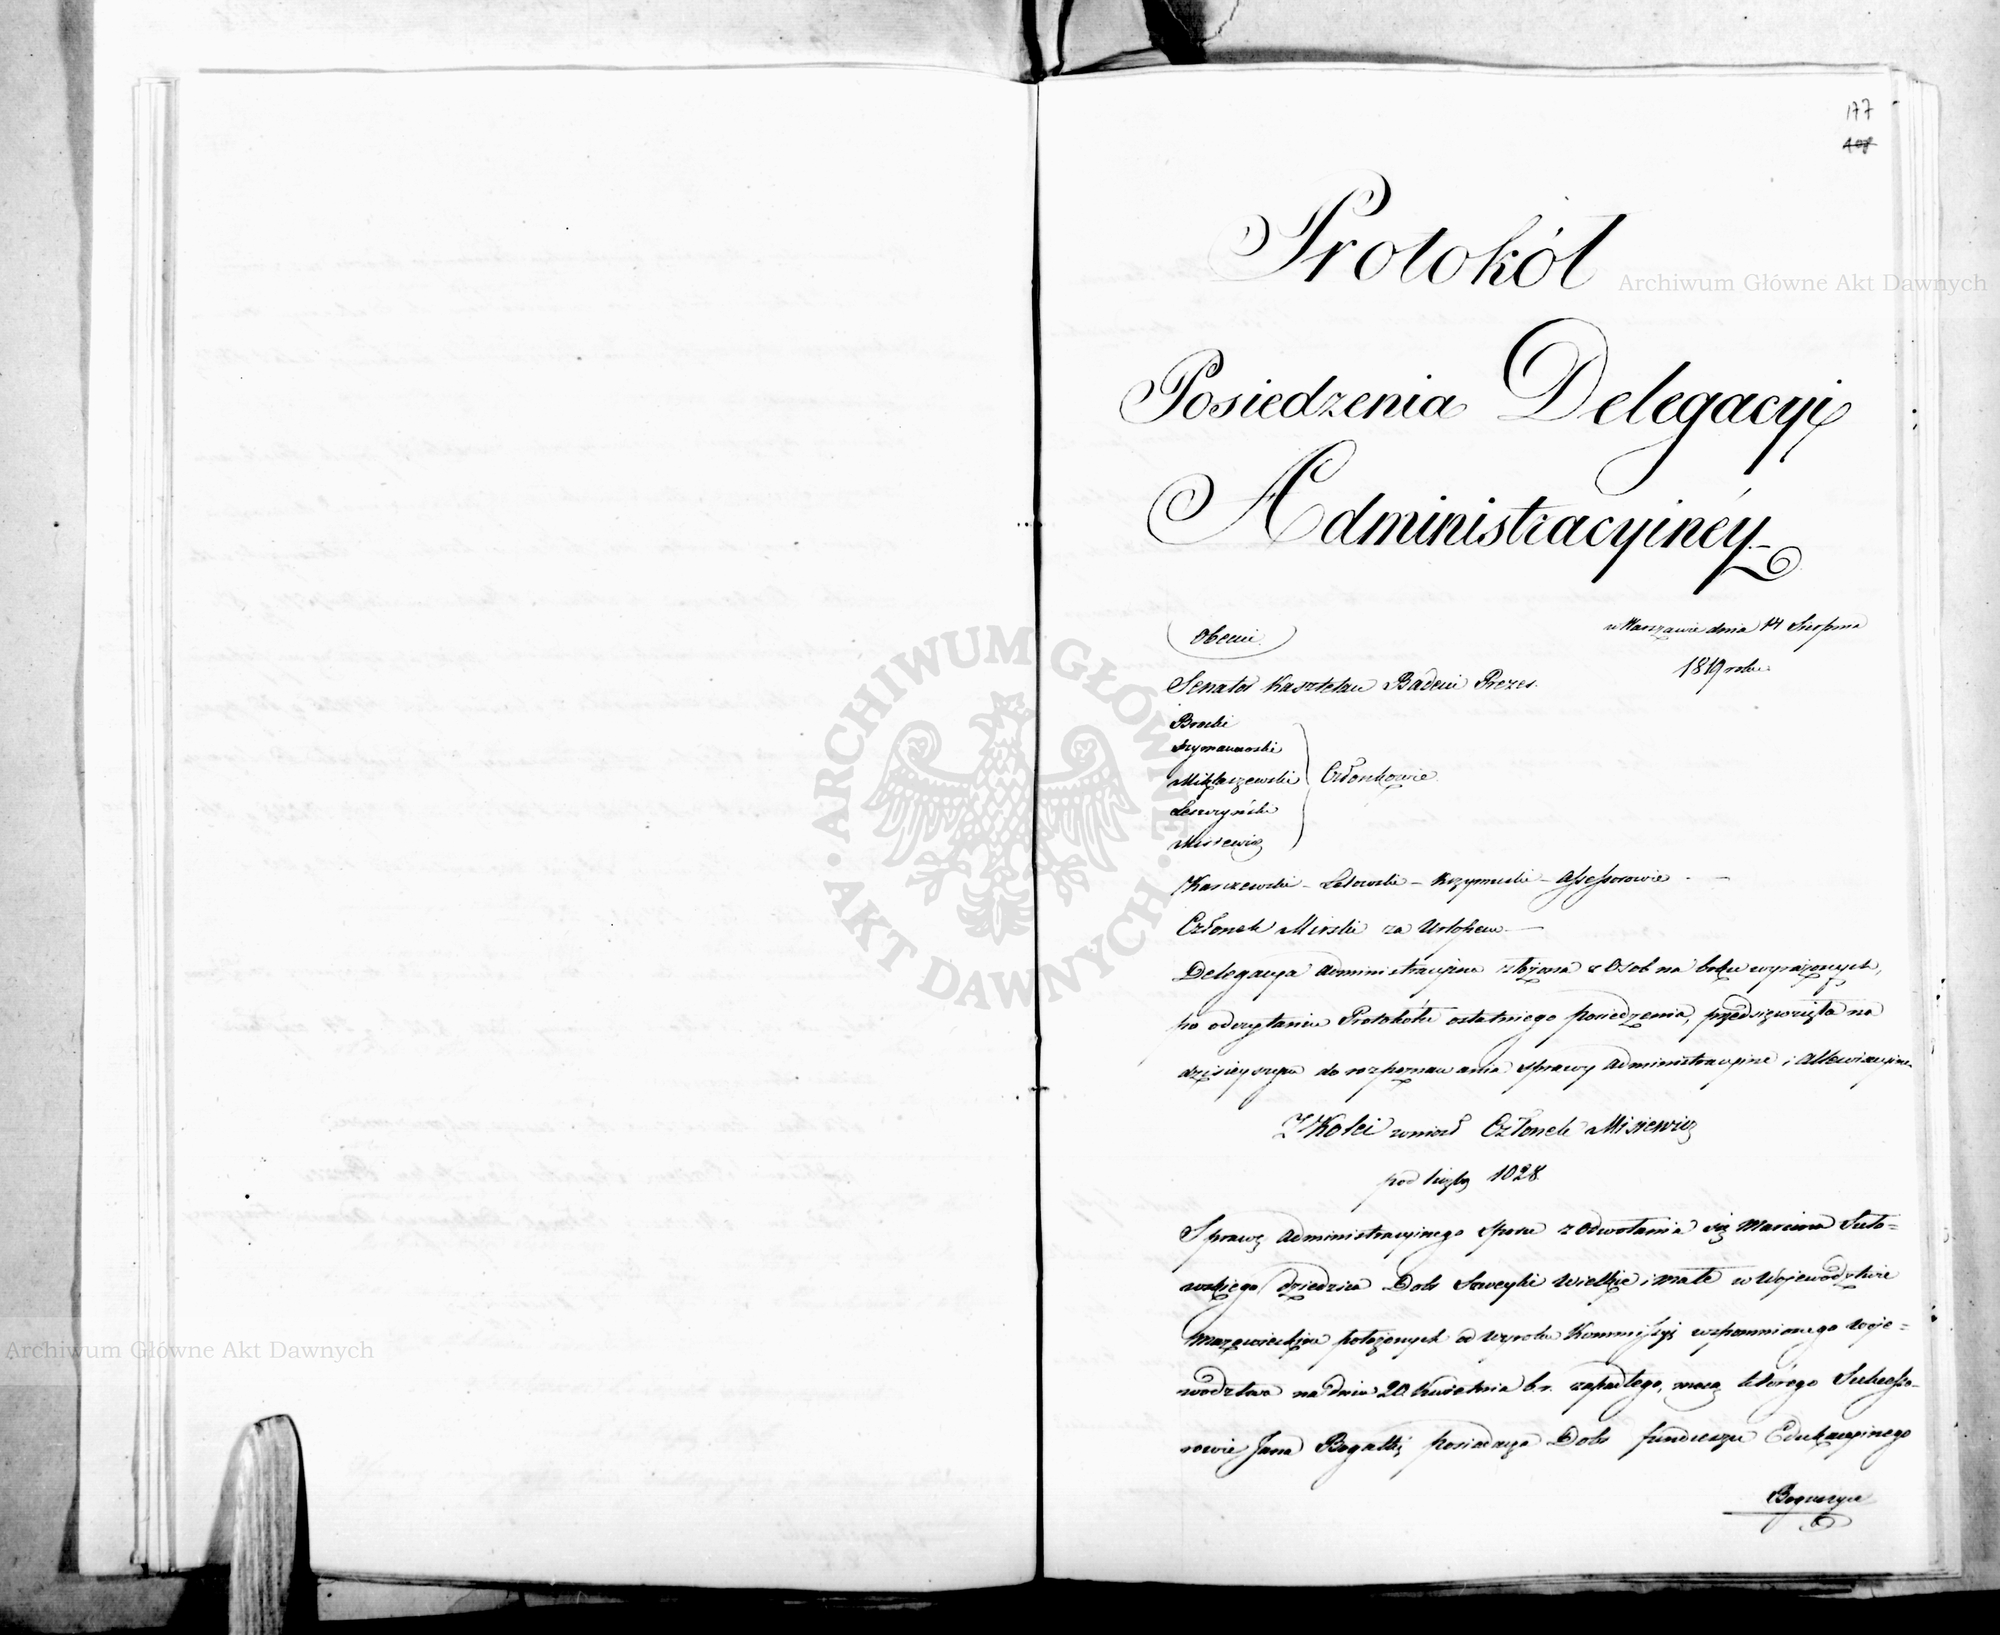 177
Protokół
Posiedzenia Delegacyi
Administracyinéy
w Warszawie dnia 14 Sierpnia
1819 roku.
Obecni
Senator Kasztelan Badeni Prezes.
Brocki
Szymanowski
Miklaszewski
Leszczyński
Misiewicz
Członkowie
Karczewski - Letowski - Krzymuski - Assessorowie
Członek Mirski za Urlopem
Delegacya Administracyina złożona z Osob na boku wyrażonych,
po odczytaniu Protokółu ostatniego posiedzenia, przedsięwzięła na
dzisieyszym do rozpoznawania sprawy Administracyine i
Z Kolei wniosł Członek Misiewicz
pod liczbą 1028
Sprawę Administracyinego sporu z odwołania się Marcina
dziedzica Dobr Wielkie i małe w Województwie
Mazowieckim położonych od wyroku Kommissyi wspomnionego Woje=
wództwa na dniu 20 Kwietnia b.r. zapadłego, mocą którego Sukcesso-
rowie Jana posiadacza Dobr funduszu Edukacyinego
Archiwum Główne Akt Dawnych
Archiwum Główne Akt Dawnych
ARCHIWUM GŁÓWNE AKT DAWNYCH